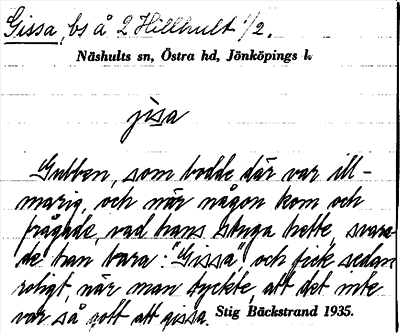 Gissa, bs å 2 Hillhult 1/2.
Näshults sn, Östra hd, Jönköpings l.
jisa
Gubben, som bodde där var ill-
marig, och när någon kom och
frågade, vad hans stuga hette, svara-
de han bara: "Gissa", och fick sedan
roligt, när man tyckte, att det inte
var så gott att gissa. Stig Bäckstrand 1935.